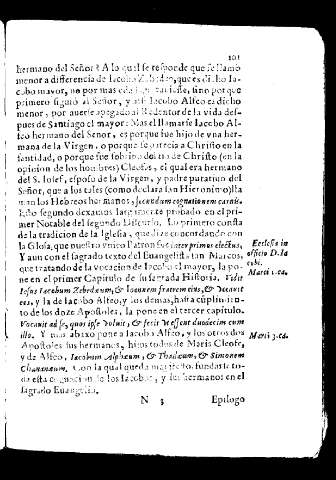 101
hermano del Señor? A lo qual se responde que se llamò
menor a differencia de Iacobo Zebedeo, que es dicho Ia-
cobo mayor, no por mas edad, sino porque
primero siguiò al Señor, y assi Iacobo Alfeo es dicho
menor, por auerse apegado al Redentor de la vida des-
pues de Santiago el mayor: Mas el llamarse Iacobo Al-
feo hermano del Señor, es porque fue hijo de vna her-
mana de la Virgen, o porque se parecia a Christo en la
santidad, o porque fue sobrino de Christo (en la
opinion de los hombres) Cleofas, el qual era hermano
del S. Iosef, esposo de la Virgen, y padre putatiuo del
Señor, que a los tales (como declara san Hieronimo) lla
man los Hebreos hermanos, secundum cognationem carnis.
Lo segundo dexamos largamente probado en el pri-
mer Notable del segundo Discurso. Lo primero consta
de la tradicion de la Iglesia, que lo dize concordando con
la Glosa, que nuestro vnico Patron fue inter primus electus,
Y aun con el sagrado texto del Euangelista san Marcos,
que tratando de la vocacion de Iacobo el mayor, la po-
ne en el primer Capitulo de su sagrada Historia. Vidit
Iesus Iacobum Zebedæum, & Ioannem fratrem eius, & vocauit
eos, y la de Iacobo Alfeo, y los demas, hasta cumplimien-
to de los doze Apostoles, la pone en el tercer capitulo.
Vocauit ad se, quos ipse voluit, & fecit vt essent duodecim cum
illo. Y mas abaxo pone a Iacobo Alfeo, y los otros dos
Apostoles sus hermanos, hijos todos de Maria Cleofe,
y de Alfeo, Iacobum Alphæum, & Thadæum, & Simonem
Chananæum. Con la qual queda manifiesto, fundada to-
da esta de los Iacobos, y sus hermanos en el
sagrado Euangelio.
Ecclesia in
officio D. Ia
cobi.
Marci 1. ca.
Marci 3. ca.
N 3 Epilogo